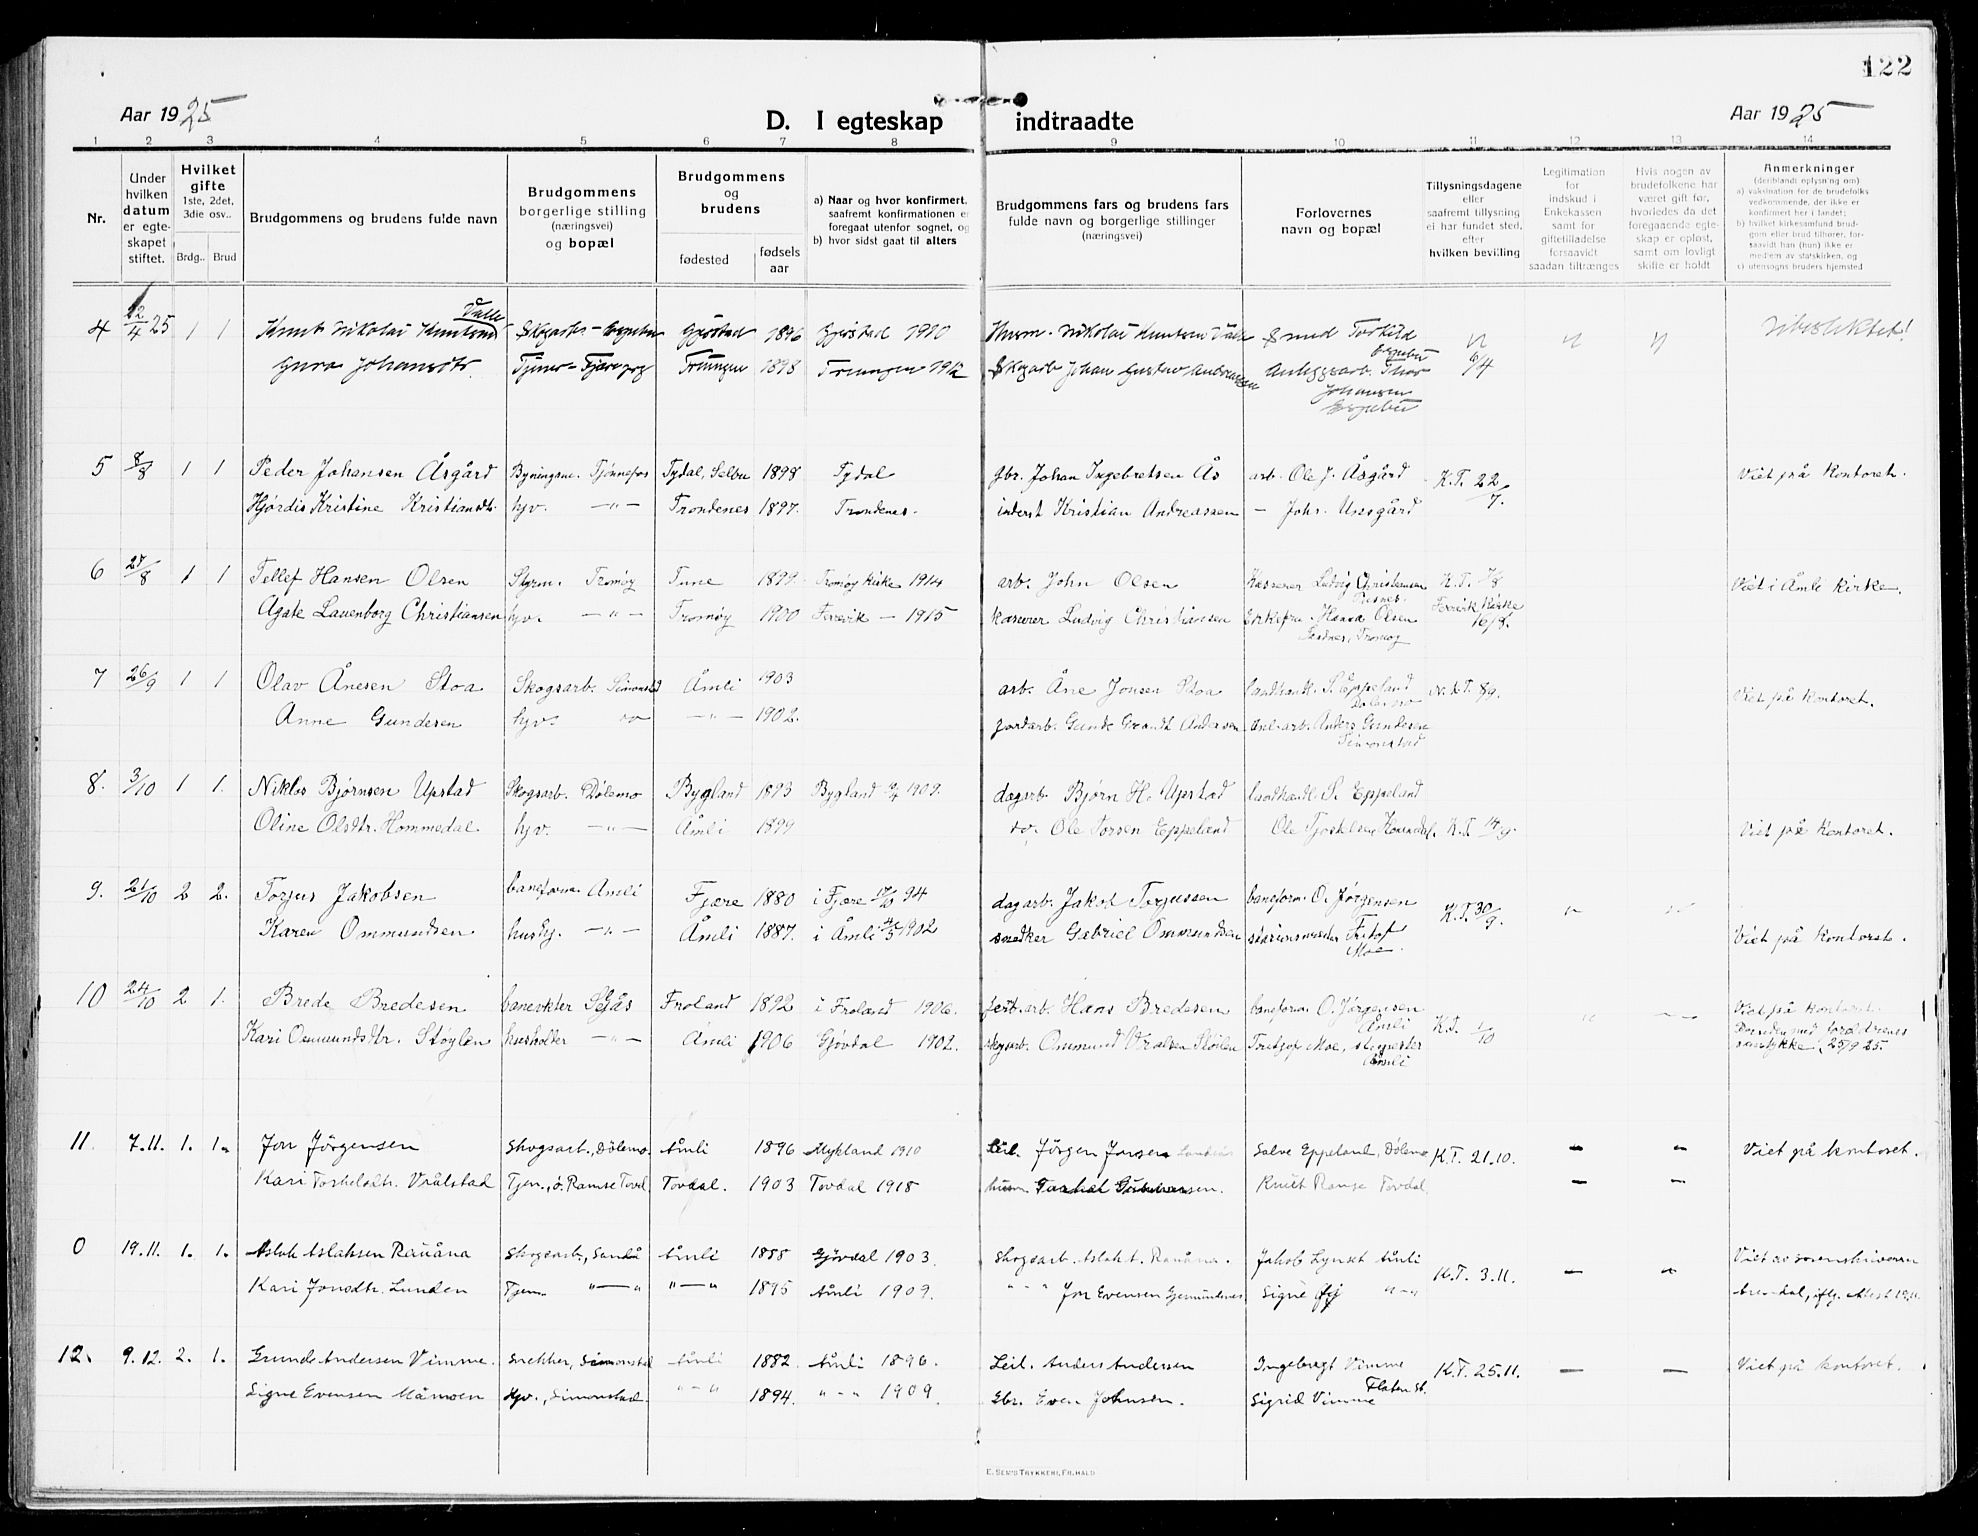 122
Aar 1925
D. I egteskap indtraadte
Aar 1925
1 2 3 4 5 6 7 8 9 10 11 12 13 14
Nr.
Under
hvilken
datum
er egte-
skapet
stiftet.
Hvilket
gifte
1ste, 2det,
3die osv..
Brdg.. Brud
Brudgommens og brudens fulde navn
Brudgommens
borgerlige stilling
(næringsvei)
og bopæl
Brudgommens
og
brudens
fødested
fødsels
aar
a) Naar og hvor konfirmert,
saafremt konfirmationen er
foregaat utenfor sognet, og
b) hvor sidst gaat til alters
Brudgommens fars og brudens fars
fulde navn og borgerlige stillinger
(næringsvei)
Forlovernes
navn og bopæl
Tillysningsdagene
eller
saafremt tillysning
ei har fundet sted,
efter
hvilken bevilling
Legitimation
for
indskud i
Enkekassen
samt for
giftetilladelse
forsaavidt
saadan tiltrænges
Hvis nogen av
brudefolkene har
været gift før,
hvorledes da det
foregaaende egte-
skap er opløst,
samt om lovligt
skifte er holdt
Anmerkninger
(deriblandt oplysning om)
a) vaksination for de brudefolks
vedkommende, der ikke er
konfirmert her i landet;
b) hvilket kirkesamfund brud-
gom eller brud tilhører, for-
saavidt han (hun) ikke er
medlem av statskirken, og
c) utensogns bruders hjemsted
4 12/4 25 1 1 Knut Nikolai Knutsen Valle Skogarb. Gjerstad 1896 Gjerstad 1910 Husm. Nikolai Knutsen Valle Smed Torkild
Gura Johansdtr. Tjener Treungen 1898 Treungen 1912 Skogarb Johan Gustav Andreassen Anleggsarb. Thor 6/4
Johansen
5 8/8 1 1 Peder Johansen Åsgård Bygningsm. Tjønnefos Tydal, Selbu 1898 Tydal gbr. Johan Ingebretsen Ås arb. Ole J. Åsgård K.T. 22/7. Viet på kontoret.
Hjørdis Kristine Kristiansdtr. hjv. — " — Trondenes 1897. Trondenes. inderst Kristian Andreassen — Johs.
6 25/8 1 1 Tellef Hansen Olsen Styrm. Tromøy Tune 1899 Tromøy kirke 1914 arb. John Olsen Kasserer Ludvig Christiansen K.T. 7/8 Viet i Åmli kirke.
Agate Lauenborg Christiansen hjv. — " — Tromøy 1900 Færvik — 1915 kaserer Ludvig Christiansen Enkefru Hanna Olsen Færvik Kirke 16/8.
Sandnes, Tromøy
7 26/9 1 1 Olav Ånesen Stoa Skogsarb. Simonstad Åmli 1903 arb. Åne Jonsen Stoa landhandl. S. Eppeland K.T. 8/9. Viet på kontoret.
Dølemo
Anne Gundesen hjv. do — " — 1902. jordarb. Gunde Grandt Andersen Anl.arb. Anders Gundesen
Simonstad
8. 3/10 1 1. Niklos Bjørnsen Upstad Skogsarb. Dølemo Bygland 1893 Bygland 1909. dagarb. Bjørn H. Upstad landhandl. S. Eppeland
Oline Olsdtr. Hommedal. hjv. — " — Åmli 1899 do. Ole Torsen Eppeland Ole Tjostelsen K.T. 14/9. Viet på kontoret.
9. 21/10 2 2. Torjus Jakobsen baneform. Åmli Fjære 1880 i Fjære 94 dagarb. Jakob Torjussen baneform. O. Jørgensen K.T. 30/9.
Karen Ommundsen hushj. — " — Åmli 1887. i Åmli 1902 snedker Gabriel Ommundsen stasjonsmester Fritjof Viet på kontoret.
Moe
10 24/10 2 1. Brede Bredesen banevokter Selås Froland 1892 i Froland 1906. Hans Bredesen baneform. O. Jørgensen Viet på kontoret.
Åmli
Kari Osmundsdtr. Støylen husholder — " — Åmli 1906 Gjøvdal 1902. skogsarb. Ommund Støilen Fritjof Moe, st.mester K.T. 1/10 Bruden med forældrenes
Åmli samtykke, 25/9 25.
11. 7.11. 1. 1. Jon Jörgensen Skogsarb., Dölemo. Åmli 1896 Mykland 1910 Leil. Jörgen Jonsen Salve Eppeland, Dölemo K.T. 21.10. — — Viet på kontoret.
Kari Torkelsdtr. Vrålstad Tjen., d. Ramse Tovd. Tovdal. 1903 Tovdal 1918 husm. Torkel Knut Ramse Tovdal, — —
0 19.11. 1. 1. Aslak Aslaksen Rauåna Skogsarb., Sandå Åmli 1888 Gjövdal 1903. Skogsarb. Aslak t. Rauåna. Jakob Lynset Åmli K.T. 3.11. — — Viet av sorenskriveren
Kari Jonsdtr. Lunden Tjen. " — " " — " 1895 Åmli 1909. " - " Jon Evensen Signe " — " Arendal, iflg. Attest 19.11.
12. 9.12. 2. 1. Grunde Andersen Vimme. Snekker, Simonstad Åmli 1882 Åmli 1896. Leil. Anders Andersen Ingebregt Vimme K.T. 25.11. — — Viet på kontoret.
Flaten st.
Signe Evensen Måmoen Hjv., Simonstad. " — " 1894. " — " 1909 Gbr. Even Johnsen. Sigrid Vimme
E. SEM'S TRYKKERI, FR.HALD